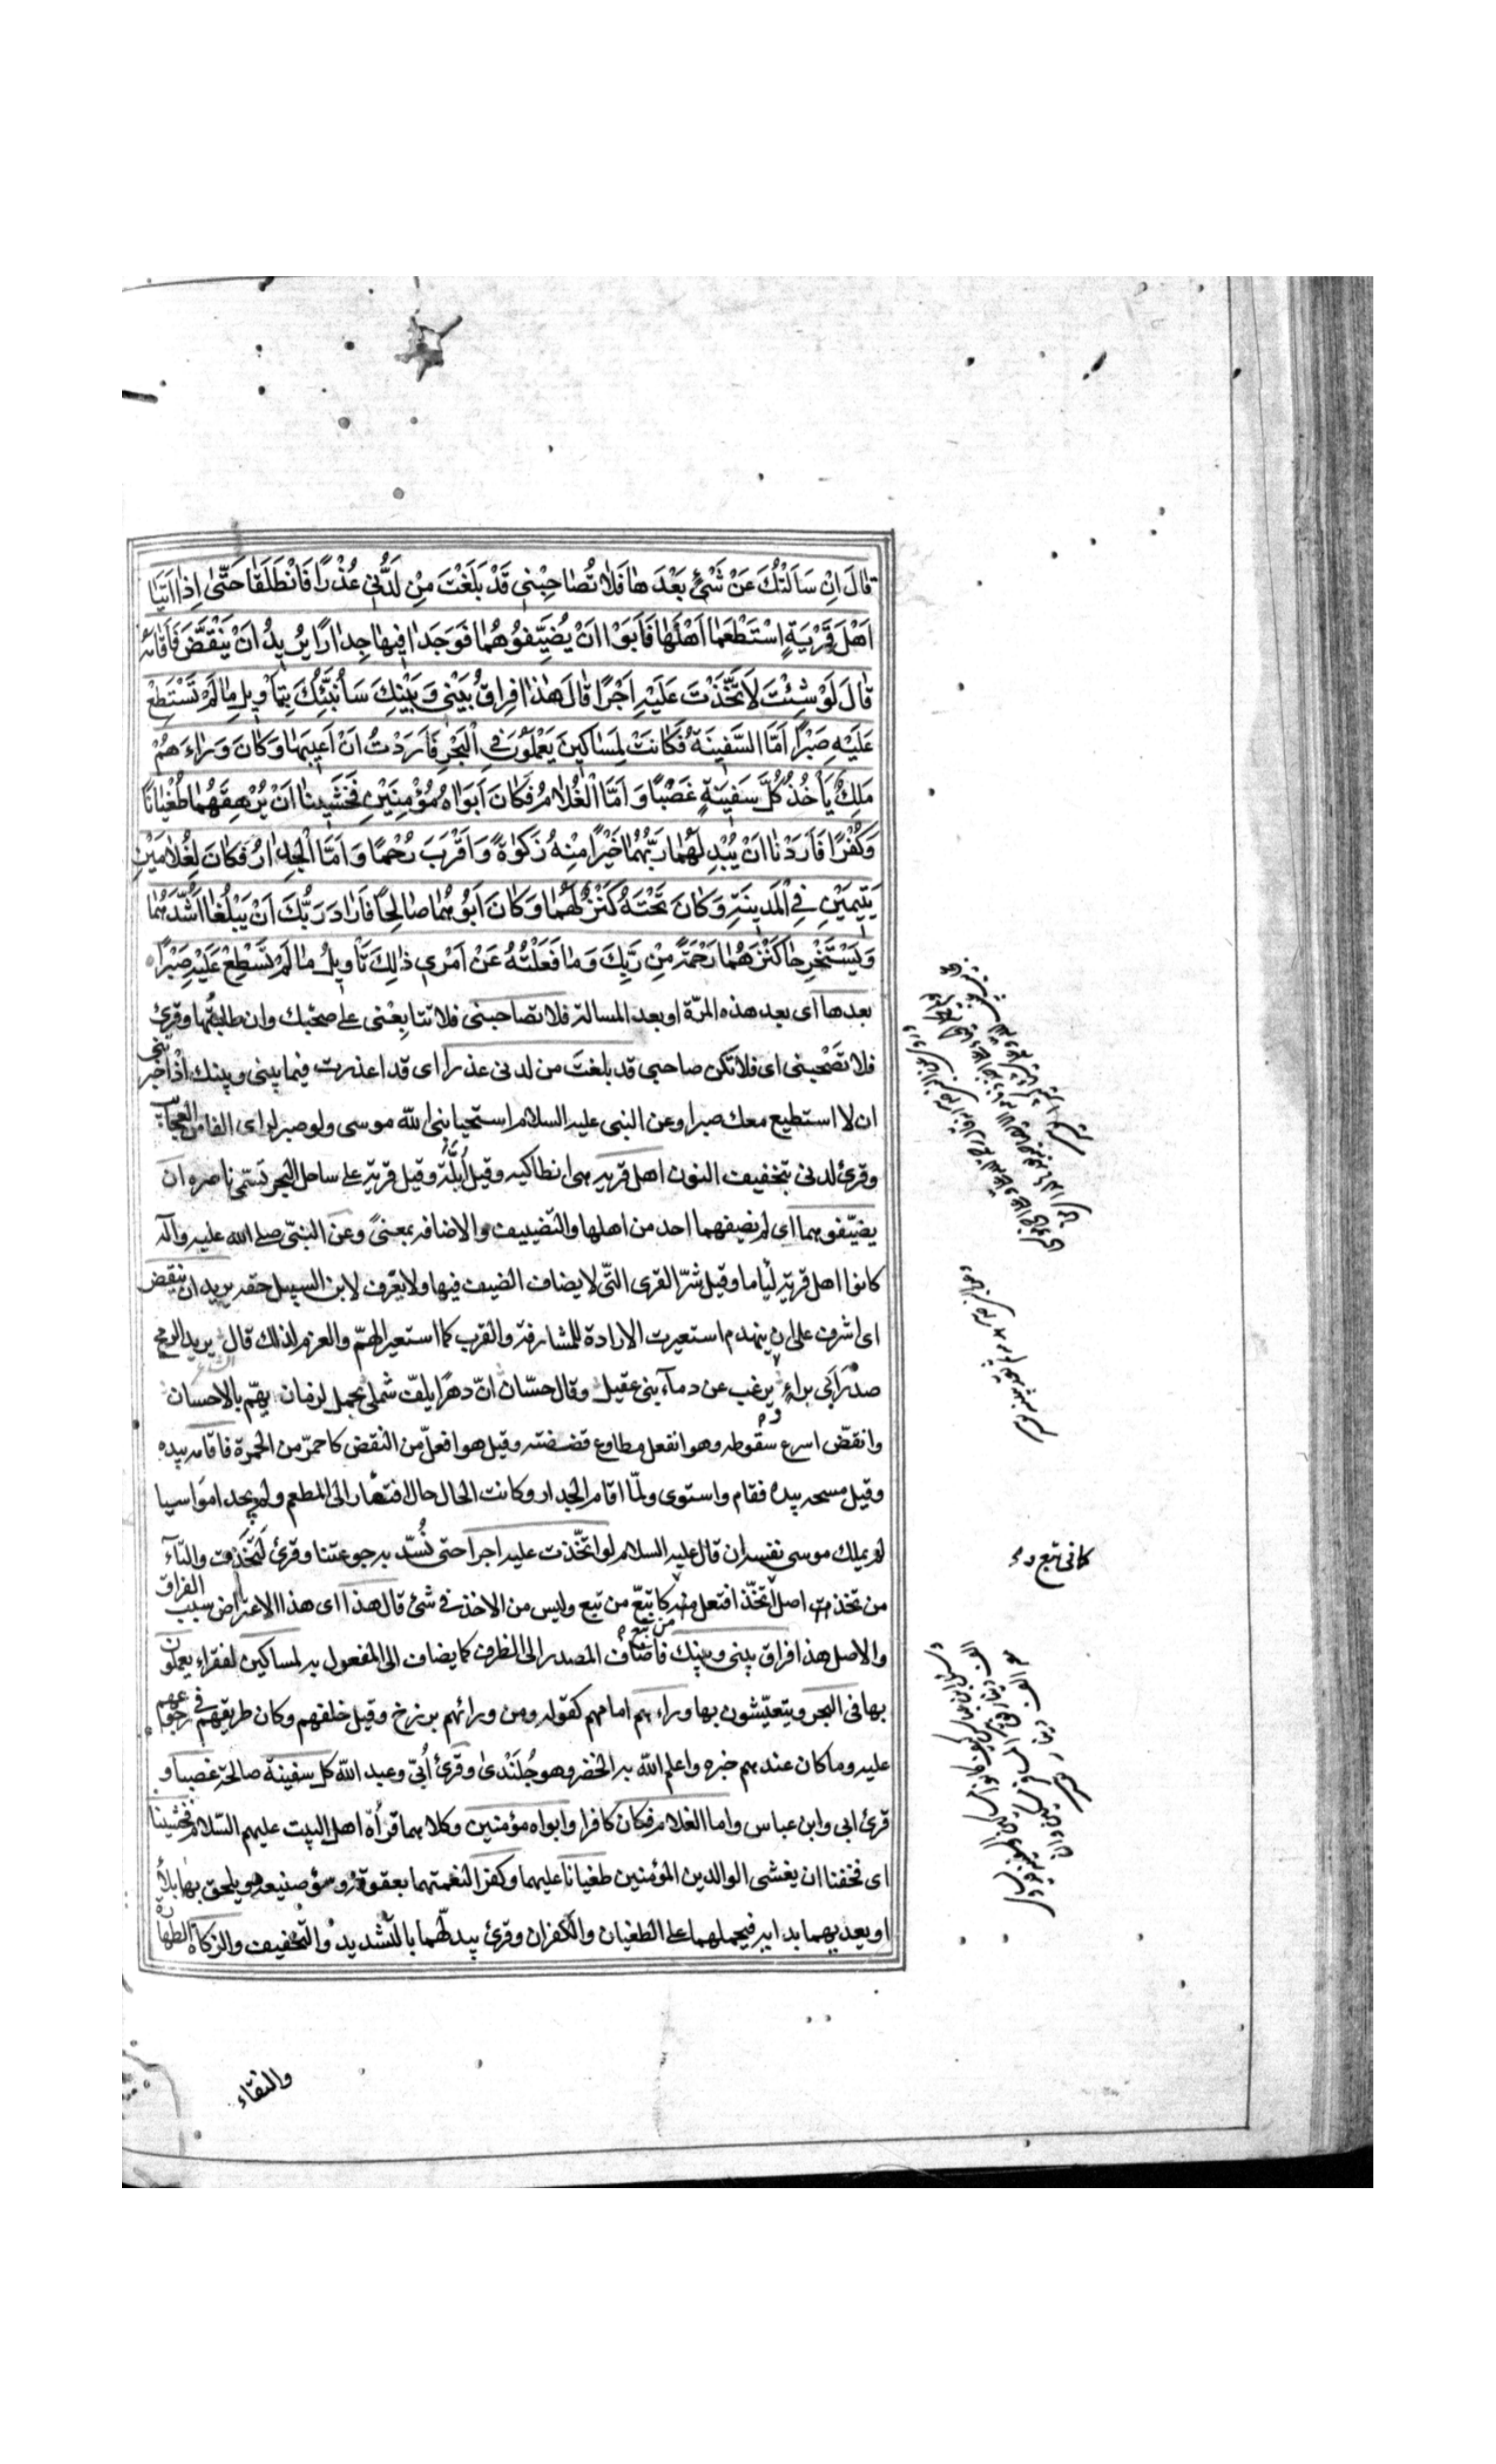 قَالَ اِنْ سَاَلْتُكَ عَنْ شَيْءٍ بَعْدَهَا فَلَا تُصَاحِبْنِي قَدْ بَلَغْتَ مِنْ لَدُنِّي عُذْرًا فَانْطَلَقَا حَتّٰى اِذَا اَتَيَا
اَهْلَ قَرْيَةٍ اسْتَطْعَمَا اَهْلَهَا فَاَبَوْا اَنْ يُضَيِّفُوهُمَا فَوَجَدَا فِيهَا جِدَارًا يُرِيدُ اَنْ يَنْقَضَّ فَاَقَامَهُ
قَالَ لَوْ شِئْتَ لَاتَّخَذْتَ عَلَيْهِ اَجْرًا قَالَ هٰذَا فِرَاقُ بَيْنِي وَبَيْنِكَ سَاُنَبِّئُكَ بِتَاْوِيلِ مَا لَمْ تَسْتَطِعْ
عَلَيْهِ صَبْرًا اَمَّا السَّفِينَةُ فَكَانَتْ لِمَسَاكِينَ يَعْمَلُونَ فِي الْبَحْرِ فَاَرَدْتُ اَنْ اَعِيبَهَا وَكَانَ وَرَاءَهُمْ
مَلِكٌ يَأْخُذُ كُلَّ سَفِينَةٍ غَصْبًا وَاَمَّا الْغُلَامُ فَكَانَ اَبَوَاهُ مُؤْمِنَيْنِ فَخَشِينَا اَنْ يُرْهِقَهُمَا طُغْيَانًا
وَكُفْرًا فَاَرَدْنَا اَنْ يُبْدِلَهُمَا رَبُّهُمَا خَيْرًا مِنْهُ زَكٰوةً وَاَقْرَبَ رُحْمًا وَاَمَّا الْجِدَارُ فَكَانَ لِغُلَامَيْنِ
يَتِيمَيْنِ فِي الْمَدِينَةِ وَكَانَ تَحْتَهُ كَنْزٌ لَهُمَا وَكَانَ اَبُوهُمَا صَالِحًا فَاَرَادَ رَبُّكَ اَنْ يَبْلُغَا اَشُدَّهُمَا
وَيَسْتَخْرِجَا كَنْزَهُمَا رَحْمَةً مِنْ رَبِّكَ وَمَا فَعَلْتُهُ عَنْ اَمْرِي ذٰلِكَ تَأْوِيلُ مَا لَمْ تَسْطِعْ عَلَيْهِ صَبْرًا
بعدها اى بعد هذه المرّة او بعد المسالة فلا تصاحبنى فلا تتابعنى على صحبتك وان طلبتُها وقرئ
فلا تصْحبنى اى فلا تكن صاحبى قد بلغت من لدنى عذرا اى قد اعذرت فيما بينى وبينك
ان لا استطيع معك صبرا وعن النبى عليه السلام استحيا نبى الله موسى ولو صبر لراى الفا من العجايب
وقرئ لدنى بتخفيف النون اهل قرية هى انطاكيه وقيل اُبلّة وقيل قرية على ساحل البحر تسمّى ناصره ان
يضيّفوهما اى لم يضيفهما احد من اهلها والتضييف والاضافه بمعنىً وعن النبّى صلى الله عليه وآله
كانوا اهل قرية لئاما وقيل شرّ القرى التّى لا يضاف الضيف فيها ولا يعرف لابن السبيل حقه يريد ان ينقض
اى اشرف على ان ينهدم استعيرت الارادة للمشارفة والقرب كما استعير الهمّ والعزم لذلك قال يريد الرمح
صدْرَ اَبى براءٍ يرغب عن دماء بنى عقيل وقال حسّان انّ دهرًا يلفّ شملى بجمل لزمان يهّم بالاحسان
وانقضّ اسرع سقوطه وهو انفعل مطاوع قضضته وقيل هو افعلّ من النقض كاحمرّ من الحمرة فاقامه بيده
وقيل مسحه بيده فقام واستوى ولمّا اقام الجدار وكانت الحال حال افتقار الى المطعم ولم يجدا مواسيا
لم يملك موسى نفسه ان قال عليه السلام لو اتخّذت عليه اجرا حتى نُسدّ به جوعتنا وقرئ لَتَخِذت والتّاء
من تخذت اصل اتخّذ افتعل منه كاتبّع من تبع وليس من الاخذ فى شئ قال هذا اى هذا الاعتراض سبب الفراق
والاصل هذا فراق بينى وبينك فاضاف المصدر الى الظرف كما يضاف الى المفعول به لمساكين لفقراء يعملون
بها فى البحر ويتعيّشون بها وراءهم امامهم كقوله ومن ورائهم برزخ وقيل خلفهم وكان طريقهم فى رجوعهم
عليه وما كان عندهم خبره واعلم الله به الخضر وهو جُلَنْدى وقرئ اُبىّ وعبد الله كل سفينة صالحة غصبا و
قرئ ابى وابن عباس واما الغلام فكان كافرا وابواه مؤمنين وكلاهما قراة اهل البيت عليهم السّلام فخشينا
اى فخفنا ان يغشى الوالدين المؤمنين طغيانا عليهما وكفرا لنعمتهما بعقوقه وسوء صنيعه ويلحق بهما بلاءً
او يعديهما بدايه فيحملهما على الطغيان والكفران وقرئ يبدلّهما بالتّشديد والتّخفيف والزكاة الطهارة
كما فى تبع
والنقاء